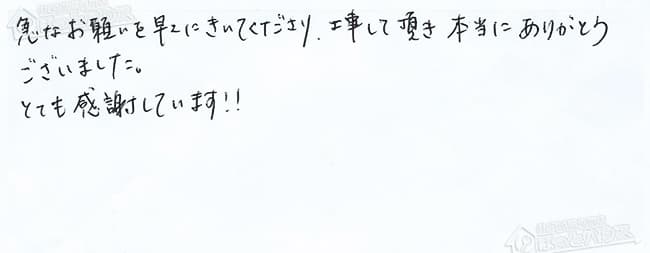 急なお願いを早々にきいてくださり、工事して頂き 本当にありがとう
ございました。
とても感謝しています!!